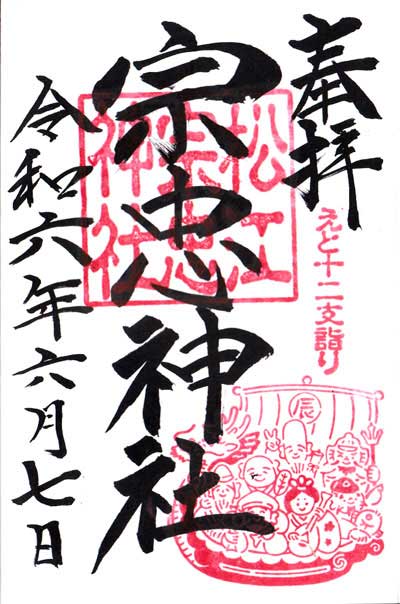 奉拝
えと十二支詣り
松江
宗忠
神社
辰
宗忠神社
令和六年六月七日